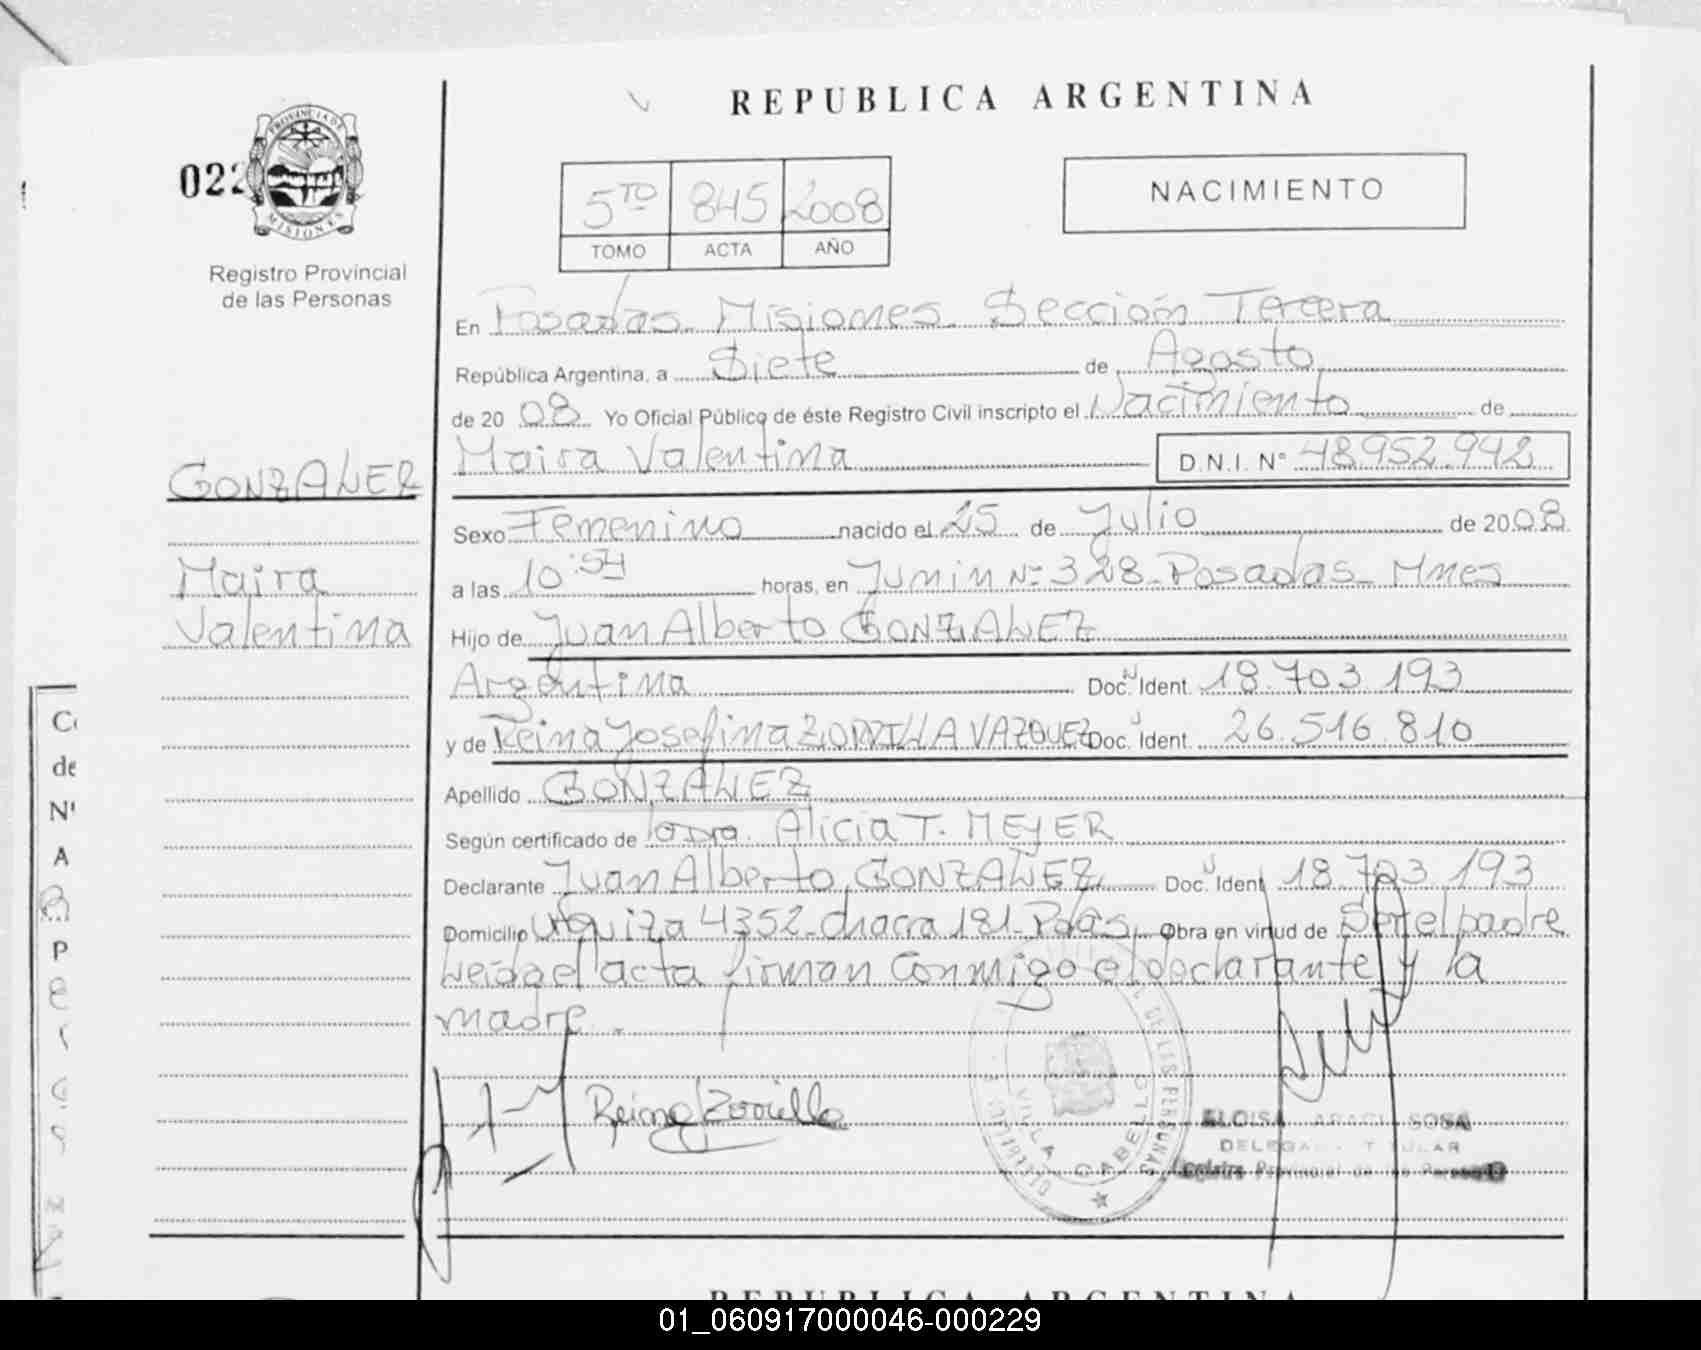 REPUBLICA ARGENTINA
022
PROVINCIA DE
MISIONES
Registro Provincial
de las Personas
5TO 845 2008
TOMO ACTA AÑO
NACIMIENTO
En Posadas Misiones. Sección Tercera
República Argentina, a Siete de Agosto
de 20 08 Yo Oficial Público de éste Registro Civil inscripto el Nacimiento de
Maira Valentina D.N.I. Nº 48.952.942
GONZALEZ
Maira
Valentina
Sexo Femenino nacido el 25 de Julio de 20 08
a las 10:54 horas, en Junin Nº 328 - Posadas - Mnes
Hijo de Juan Alberto GONZALEZ
Argentina Doc. Ident. 18.703.193
y de Reina Josefina ZORRILLA VAZQUEZ Doc. Ident. 26.516.810
Apellido GONZALEZ
Según certificado de la Dra. Alicia T. MEYER
Declarante Juan Alberto GONZALEZ Doc. Ident 18.703.193
Domicilio Urquiza 4352 - chacra 181 - Pdas. Obra en virtud de Ser el padre
Leída el acta firman conmigo el declarante y la
madre.
Reina Zorrilla
DE LAS PERSONAS
VILLA CABELLO
ELOISA ARACI SOSA
DELEGADA TITULAR
Registro Provincial de las Personas
REPUBLICA ARGENTINA
01_060917000046-000229